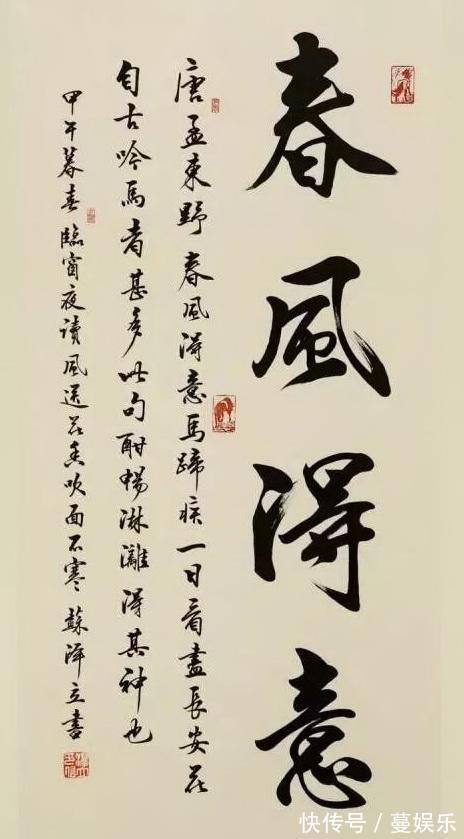 春風得意
唐孟東野春風得意馬蹄疾一日看盡長安花
自古吟馬者甚多此句酣暢淋漓得其神也
甲午暮春臨窗夜讀風送花香吹面不寒蘇澤立書
快传号 / 蔓娱乐